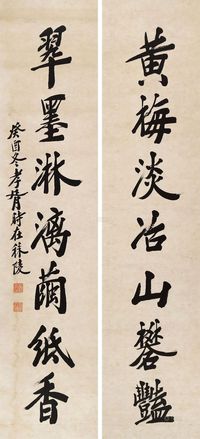 黄梅淡冶山礬艷
翠墨淋漓蘭紙香
癸酉冬孝胥時在